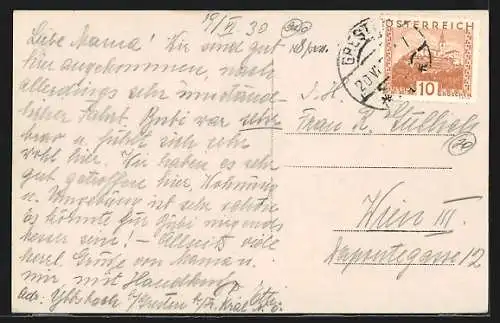 19/VI 30
Liebe Mama! Wir sind gut
hier angekommen, nach
allerdings sehr umständ-
licher Fahrt. Bubi war sehr
brav u. fühlt sich sehr
wohl hier. Wir haben es sehr
gut getroffen hier, Wohnung
u. Umgebung ist sehr schön
Es könnte für Bubi nirgends
besser sein! – Allseits viele
herzl. Grüße von Mama u.
mir mit Handkuß
Adr:
ÖSTERREICH
10
GRESTEN
20 VI
Frau
Wien III.
12